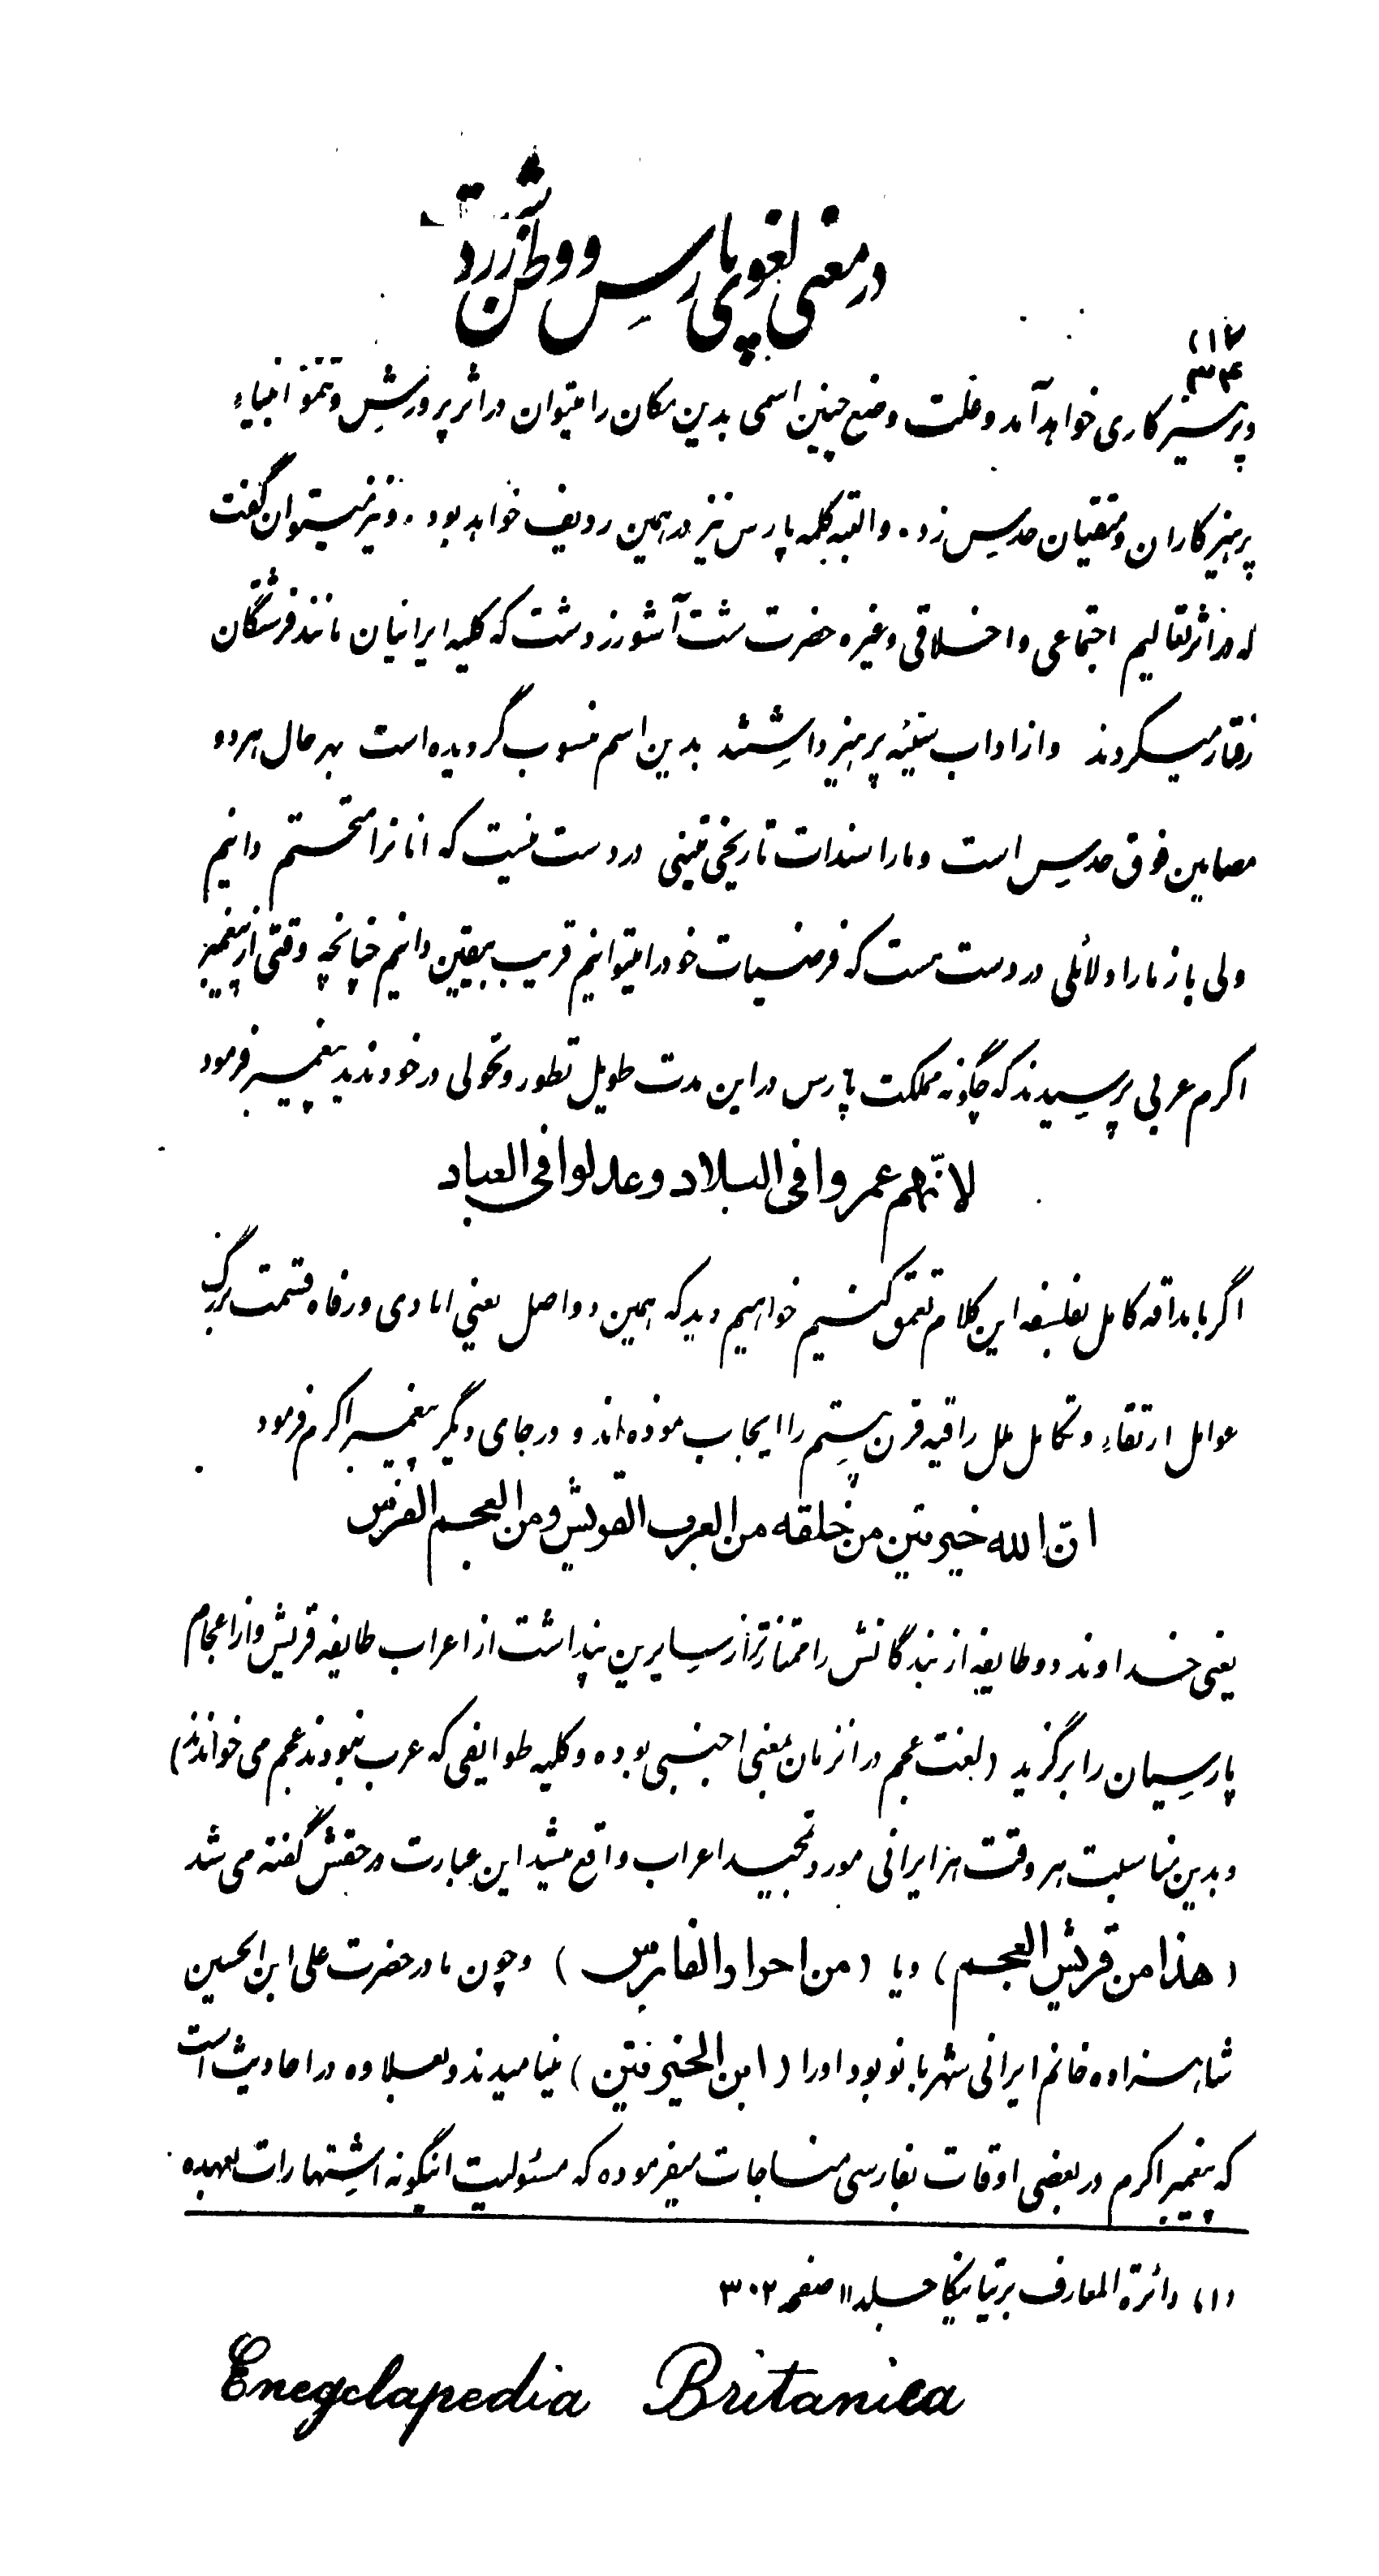 در معنی لغوی پارس و وطن زردشت
۳۴
و پرهیزکاری خواهد آمد و علت وضع چنین اسمی بدین مکان را میتوان در اثر پرورش و نمو انبیاء
پرهیزکاران و متقیان حدس زد. و البته کلمه پارس نیز در همین ردیف خواهد بود. و نیز میتوان گفت
که در اثر تعالیم اجتماعی و اخلاقی و غیره حضرت شت آشو زردشت که کلیه ایرانیان مانند فرشتگان
رفتار میکردند و از اداب سیئیه پرهیز داشتند بدین اسم منسوب گردیده است بهر حال هر دو
مضامین فوق حدس است و ما را سندات تاریخی متینی در دست نیست که انانرا متحتم دانیم
ولی باز ما را دلائلی در دست هست که فرضیات خود را میتوانیم قریب بیقین دانیم چنانچه وقتی از پیغمبر
اکرم عربی پرسیدند که چگونه مملکت پارس در این مدت طویل تطور و تحولی در خود ندید پیغمبر فرمود
لانّهم عمروا فی البلاد و عدلوا فی العباد
اگر با مداقه کامل بفلسفه این کلام تعمق کنیم خواهیم دید که همین دو اصل یعنی ابادی و رفاه قسمت بزرگ
عوامل ارتقاء و تکامل ملل راقیه قرن بیستم را ایجاب نموده اند و در جای دیگر پیغمبر اکرم فرمود
انّ الله خیرتین من خلقه من العرب القریش و من العجم الفرس
یعنی خداوند دو طایفه از بندگانش را ممتازتر از سایرین پنداشت از اعراب طایفه قریش و از اعجام
پارسیان را برگزید (لغت عجم در انزمان بمعنی اجنبی بوده و کلیه طوایفی که عرب نبودند عجم می خواندند)
و بدین مناسبت هر وقت هر ایرانی مورد تمجید اعراب واقع میشد این عبارت در حقش گفته می شد
(هذا من قریش العجم) و یا (من احوا والفارس) و چون مادر حضرت علی ابن الحسین
شاهزاده خانم ایرانی شهربانو بود او را (ابن الخیرتین) مینامیدند و بعلاوه در احادیث است
که پیغمبر اکرم در بعضی اوقات بفارسی مناجات میفرموده که مسئولیت اینگونه اشتهارات بعهده
(۱) دائرة المعارف بریتانیکا جلد ۱۱ صفحه ۳۰۲
Enegclapedia Britanica